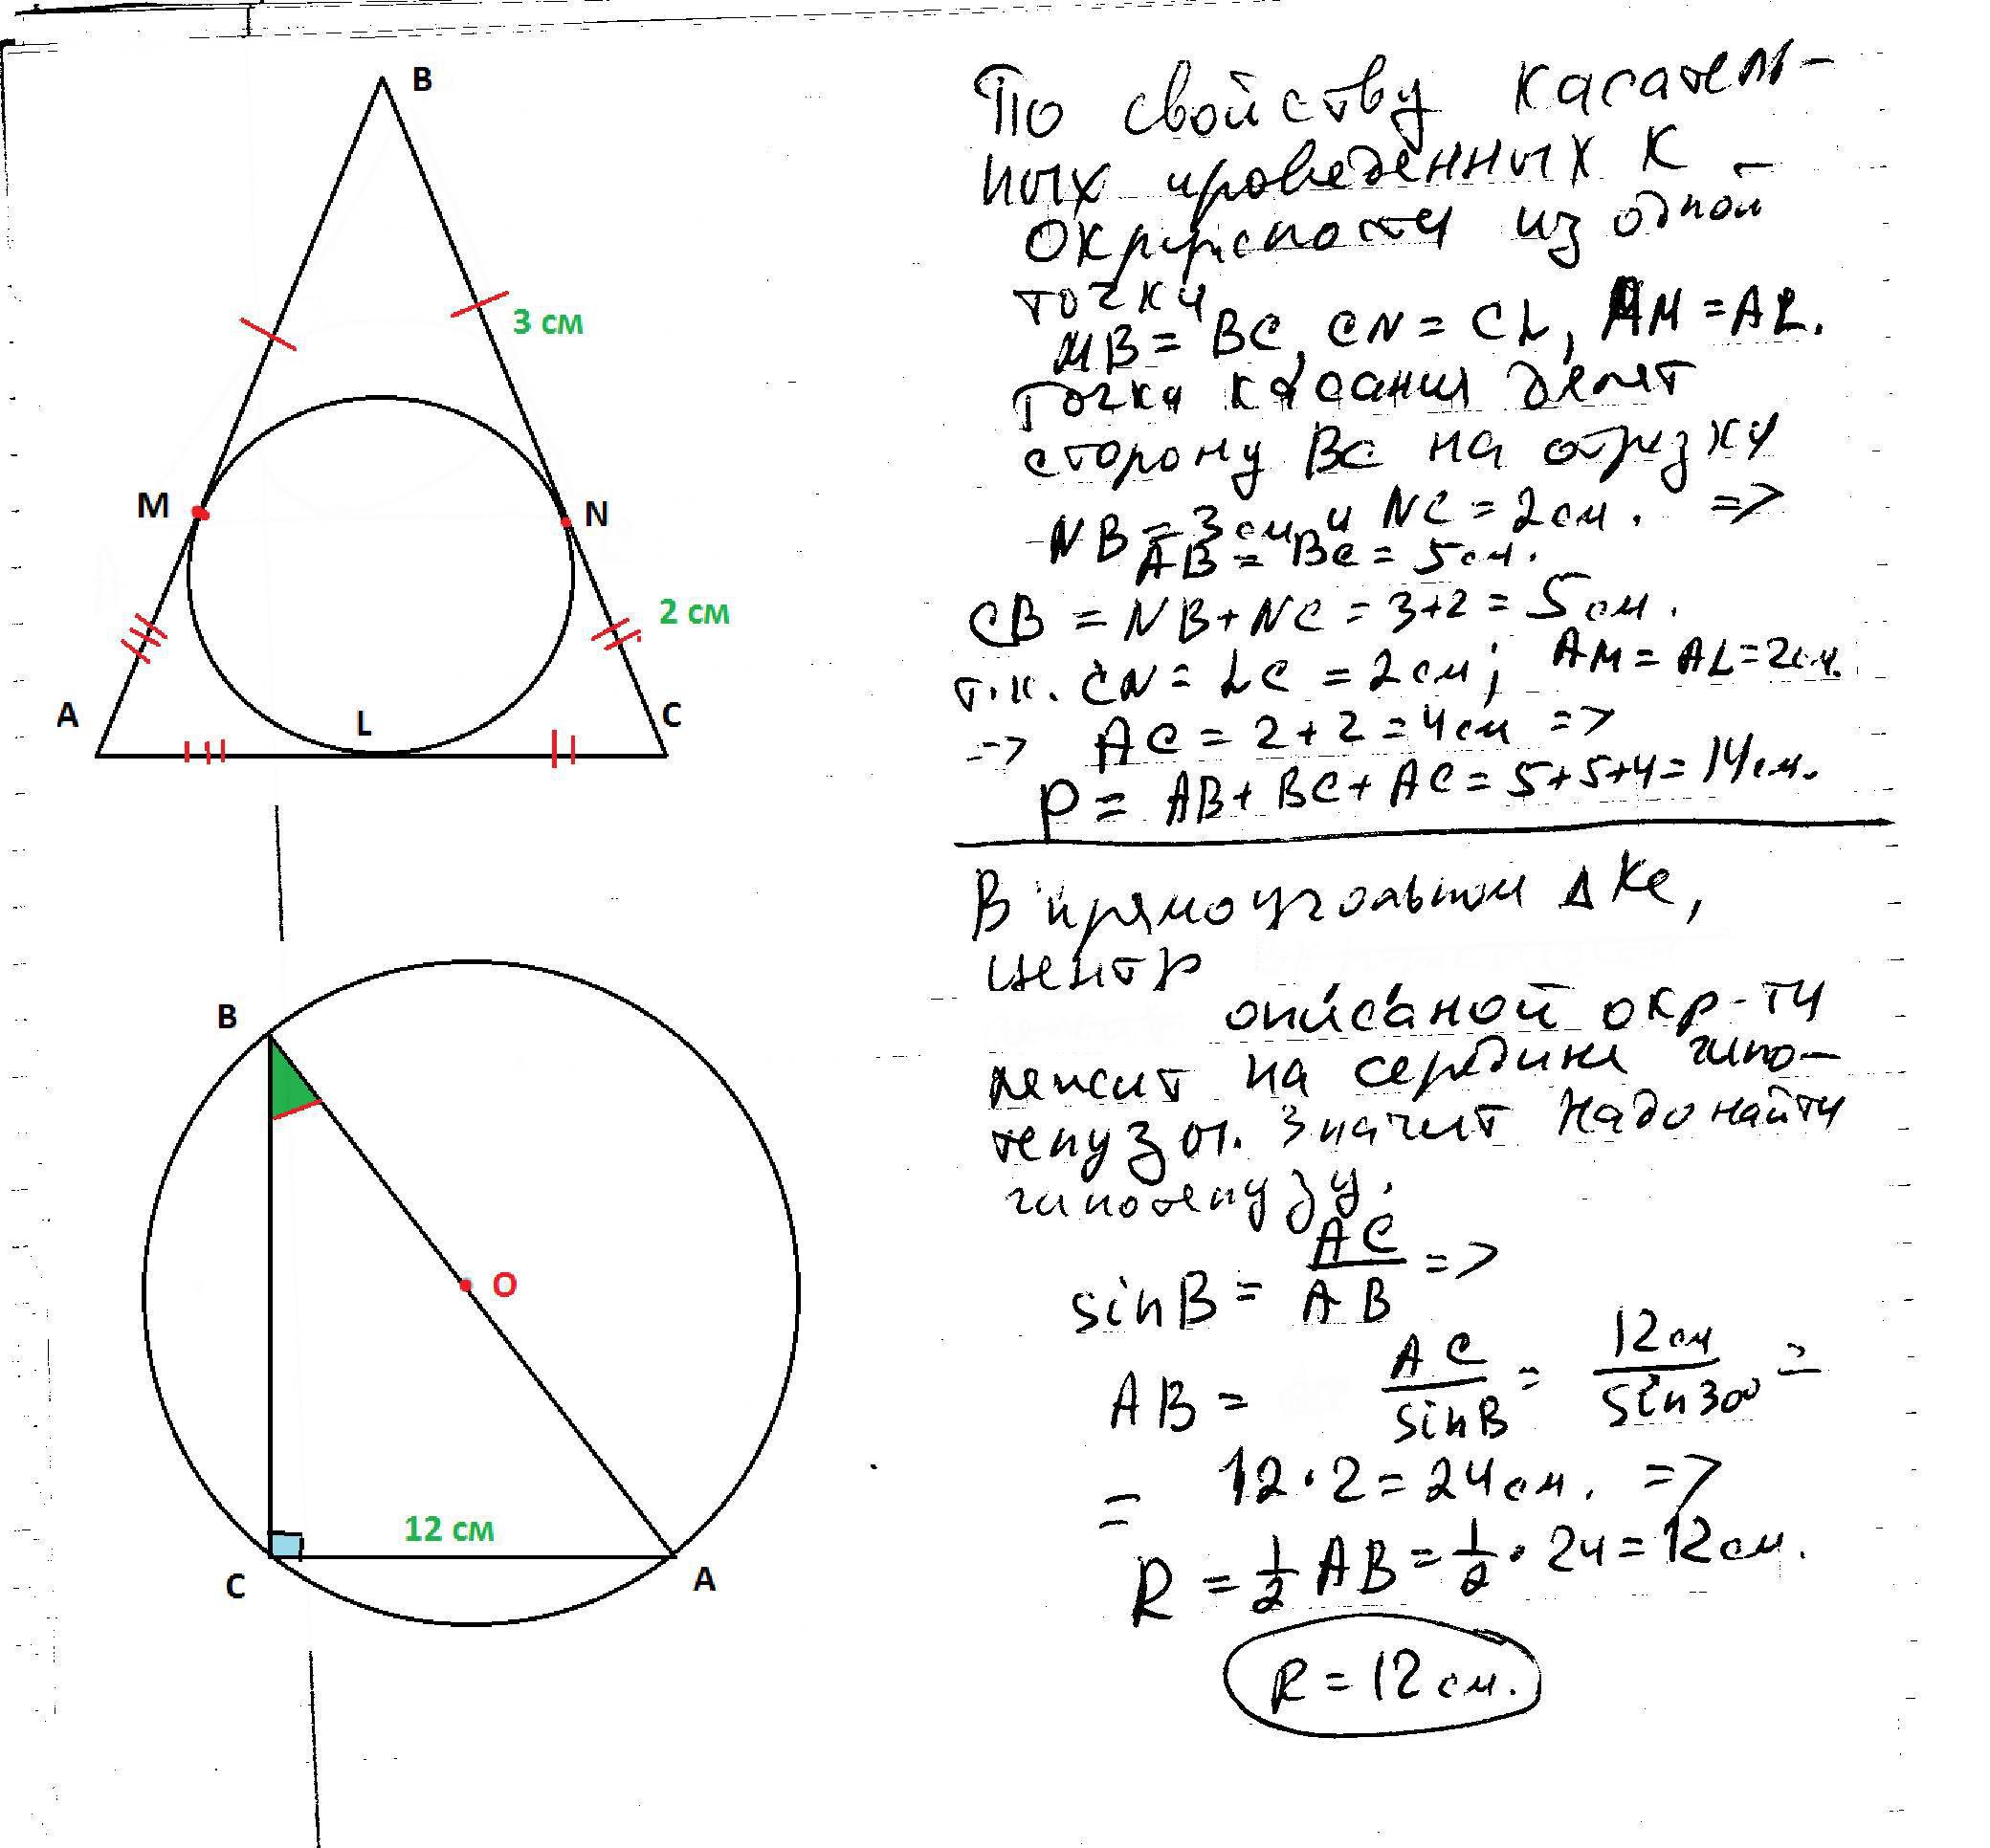 B
3 см
M
N
2 см
A
L
C
По свойству касатель-
ных проведенных к
окружности из одной
точки
MB = BC, CN = CL, AM = AL.
Точка касания делит
сторону BC на отрезки
NB = 3 см и NC = 2 см. =>
AB = BC = 5 см.
CB = NB + NC = 3+2 = 5 см.
т.к. CN = LC = 2 см; AM = AL = 2 см.
-> AC = 2 + 2 = 4 см =>
P = AB + BC + AC = 5+5+4 = 14 см.
B
O
12 см
C
A
В прямоугольном Δ Ке,
центр
описаной окр-ти
лежит на середине гипо-
тенузы. Значит надо найти
гипотенузу.
sinB = AC/AB =>
AB = AC/sinB = 12 см/sin30° =
= 12·2 = 24 см. =>
R = 1/2 AB = 1/2 · 24 = 12 см.
R = 12 см.